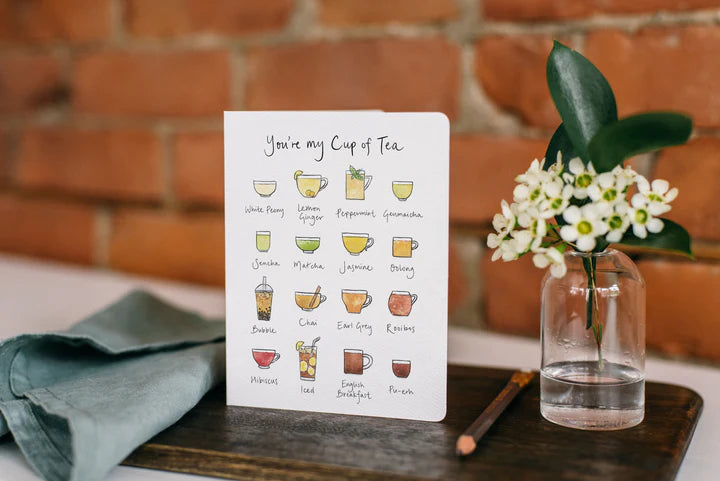 You're my Cup of Tea
White Peony
Lemon
Ginger
Peppermint
Genmaicha
Sencha
Matcha
Jasmine
Oolong
Bubble
Chai
Earl Grey
Rooibos
Hibiscus
Iced
English
Breakfast
Pu-erh